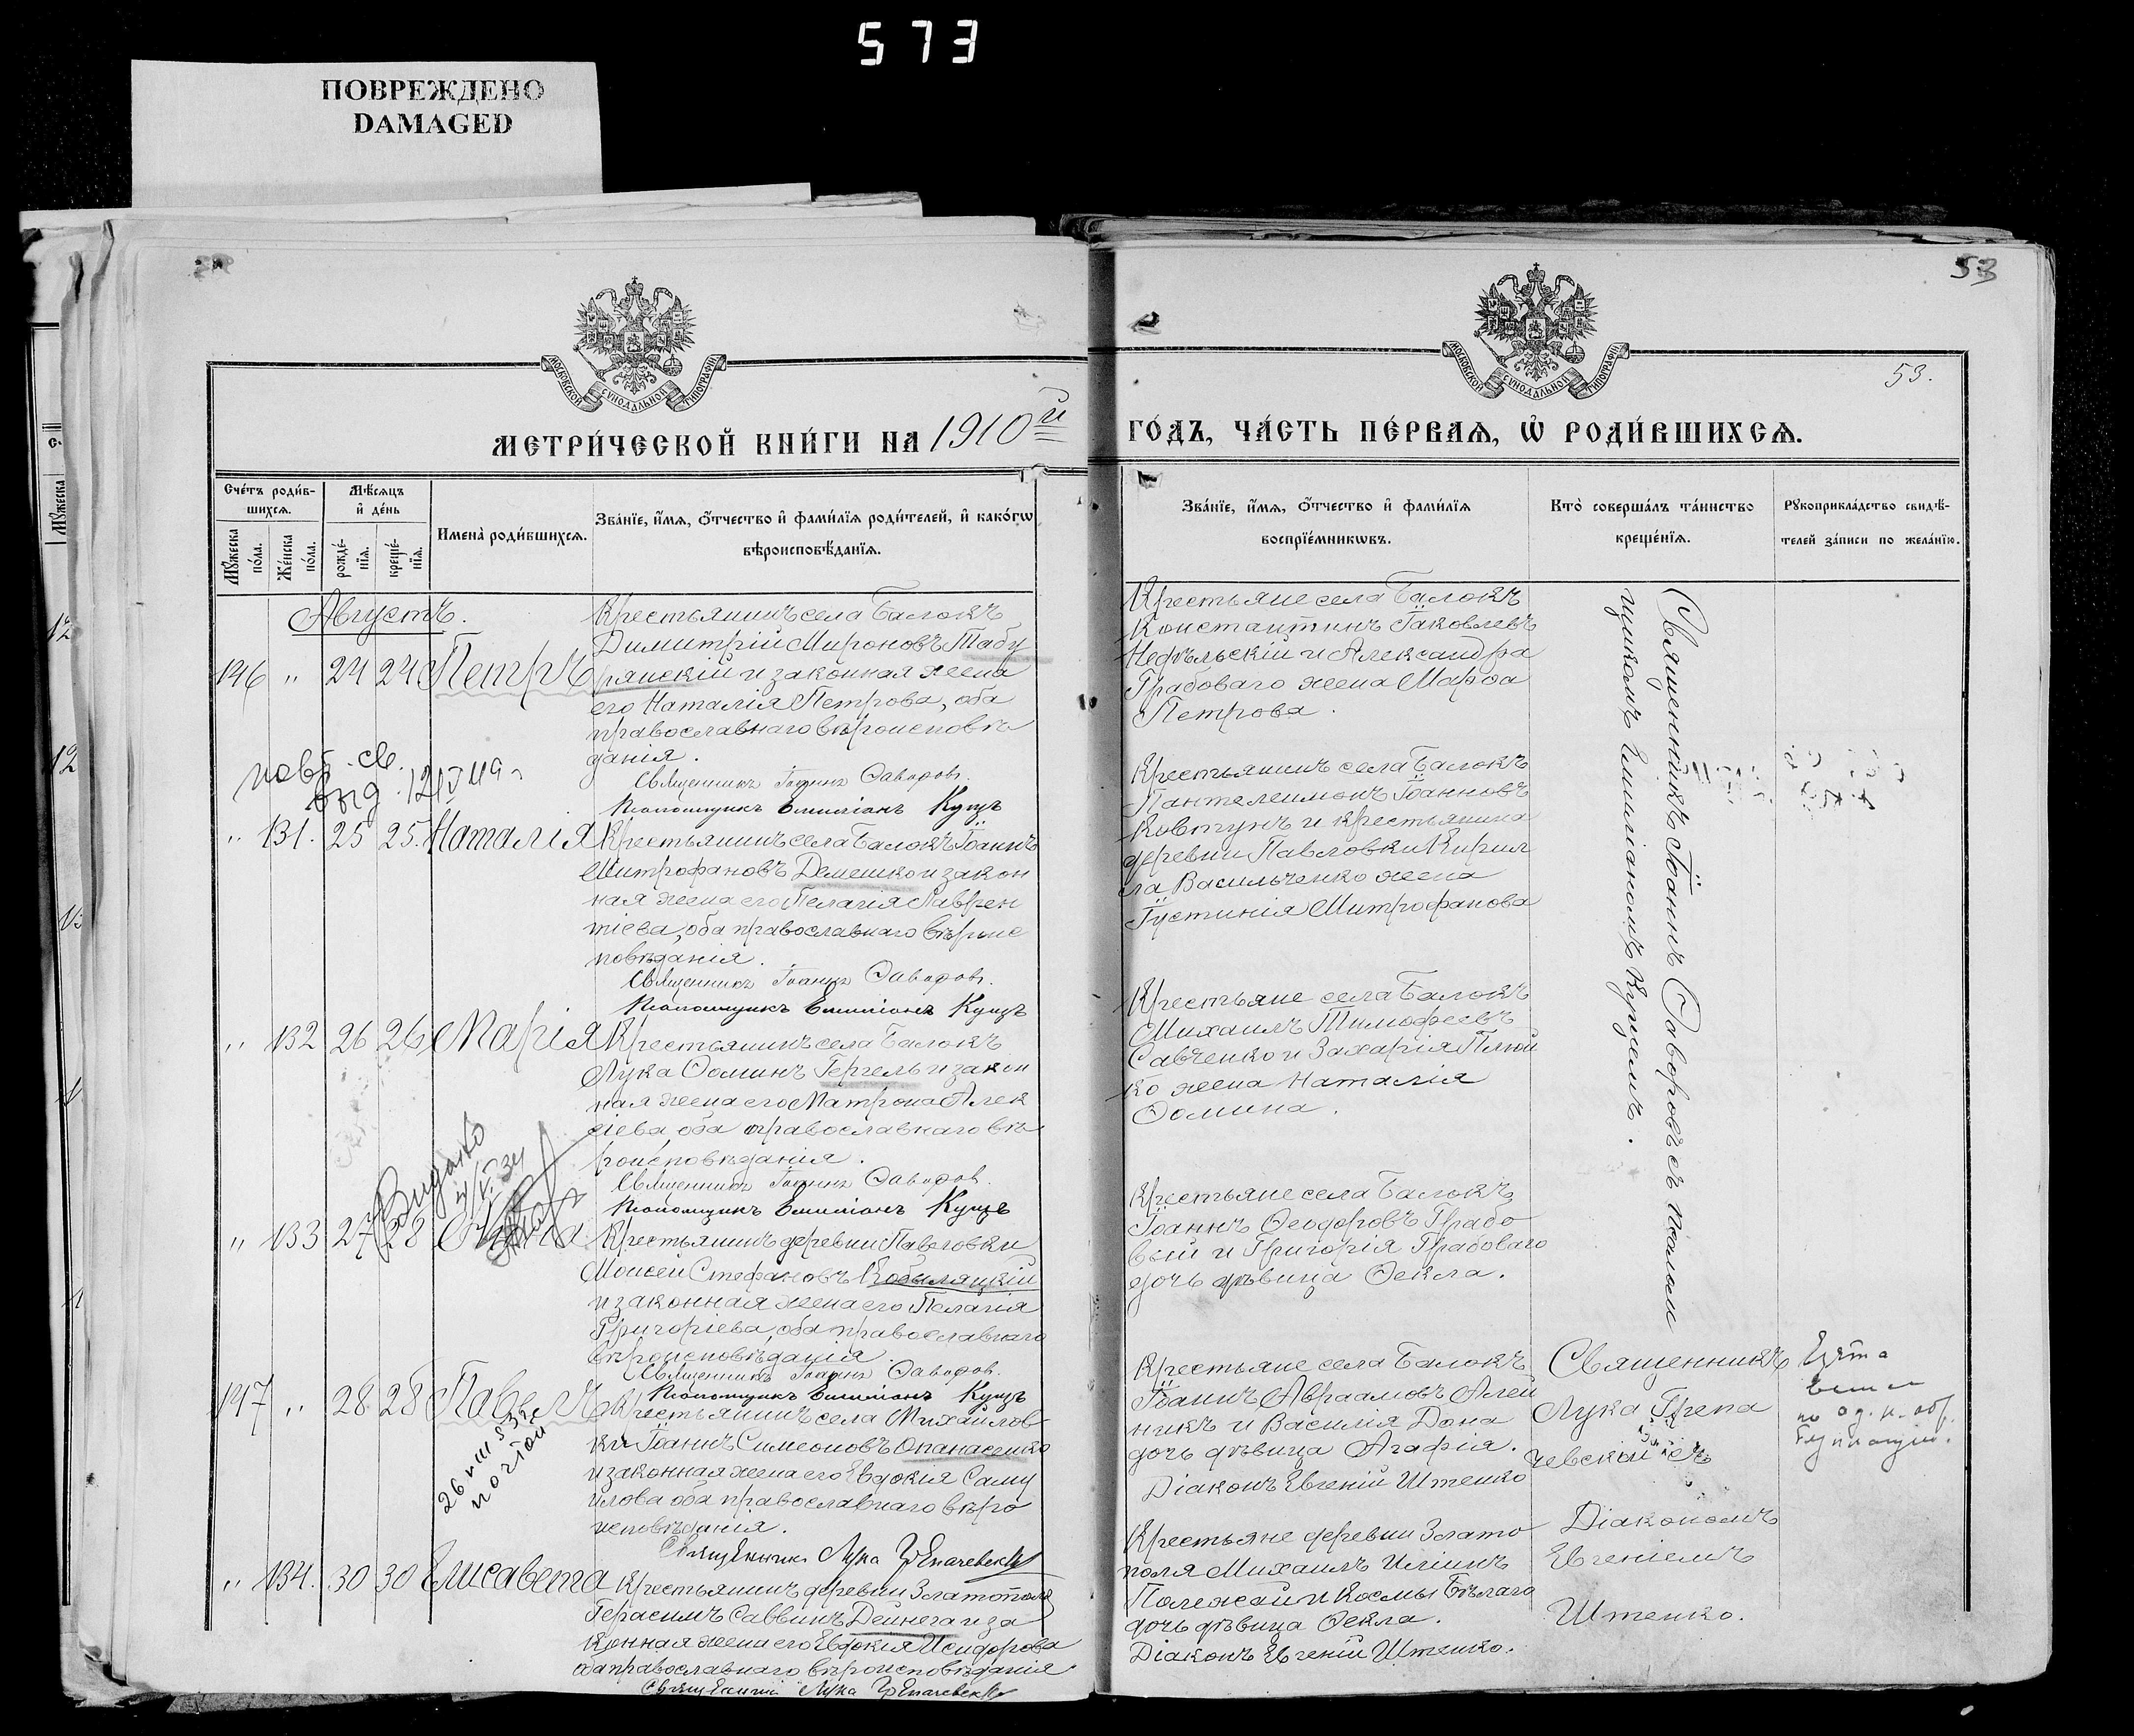 573
ПОВРЕЖДЕНО
DAMAGED
53
53.
МОСКОВСКОЙ СУНОДАЛЬНОЙ ТИПОГРАФІИ
МОСКОВСКОЙ СУНОДАЛЬНОЙ ТИПОГРАФІИ
МЕТРИ́ЧЕСКОЙ КНИ́ГИ НА 1910й ГО́ДЪ, ЧА́СТЬ ПЕ́РВАѦ, Ѡ҆ РОДИ́ВШИХСѦ.
Сче́тъ роди́в-
шихсѧ.
Мѣ́сѧцъ
и҆ де́нь
Мꙋ́жеска по́ла.
Же́нска по́ла.
рожде́-
нїѧ.
креще́-
нїѧ.
Имена̀ роди́вшихсѧ.
Зва́нїе, и҆́мѧ, ѻ҆́тчество и҆ фами́лїѧ роди́телей, и҆ како́гѡ
вѣроисповѣ́данїѧ.
Зва́нїе, и҆́мѧ, ѻ҆́тчество и҆ фами́лїѧ
воспрїе́мникѡвъ.
Кто̀ соверша́лъ та́инство
креще́нїѧ.
Рꙋкоприкла́дство свидѣ́-
телей за́писи по жела́нїю.
Августъ.
146 " 24 24 Петръ
Крестьянинъ села Балокъ
Димитрій Мироновъ Табу
рянскій и законная жена
его Наталія Петрова, оба
православнаго вѣроисповѣ
данія.
Священникъ Іоаннъ Ѳаворовъ.
Псаломщикъ Емиліанъ Куцъ
Крестьяне села Балокъ
Константинъ Іаковлевъ
Недѣльскій и Александра
Грабоваго жена Марѳа
Петрова.
Священникъ Іоаннъ Ѳаворовъ съ псалом
щикомъ Емиліаномъ Куцемъ.
повт. св.
выд.
" 131. 25 25. Наталія
Крестьянинъ села Балокъ Іоаннъ
Митрофановъ Демешко и закон
ная жена его Пелагія Лаврен
тіева, оба православнаго вѣроис
повѣданія.
Священникъ Іоаннъ Ѳаворовъ.
Псаломщикъ Емиліанъ Куцъ
Крестьянинъ села Балокъ
Пантелеимонъ Іоанновъ
Ковтунъ и крестьянина
деревни Павловки Кирил
ла Васильченко жена
Іустинія Митрофанова
" 132 26 26 Марія
Крестьянинъ села Балокъ
Лука Ѳоминъ Гергель и закон
ная жена его Матрона Алек
сіева, оба православнаго вѣ
роисповѣданія.
Священникъ Іоаннъ Ѳаворовъ.
Псаломщикъ Емиліанъ Куцъ
Крестьяне села Балокъ
Михаилъ Тимофеевъ
Савченко и Захарія Плюй
ко жена Наталія
Ѳомина.
Видано
" 133 27 28
Крестьянинъ деревни Павловки
Моисей Стефановъ Кобыляцкій
и законная жена его Пелагія
Григоріева, оба православнаго
вѣроисповѣданія.
Священникъ Іоаннъ Ѳаворовъ.
Псаломщикъ Емиліанъ Куцъ
Крестьяне села Балокъ
Іоаннъ Ѳеодоровъ Грабо
вый и Григорія Грабоваго
дочь дѣвица Ѳекла.
147 " 28 28 Павелъ
почтой
Крестьянинъ села Михайлов
ки Іоаннъ Симеоновъ Опанасенко
и законная жена его Евдокія Саму
илова оба православнаго вѣро
исповѣданія.
Священникъ Лука Грепачевскій
Крестьяне села Балокъ
Іоаннъ Авраамовъ Олей
никъ и Василія Дона
дочь дѣвица Агафія.
Діаконъ Евгеній Штенко
Священникъ
Лука Грепа
чевскій съ
Діакономъ
Евгеніемъ
Штенко.
" 134. 30 30 Елисавета
Крестьянинъ деревни Златополя
Герасимъ Саввинъ Дейнега и за
конная жена его Евдокія Исидорова
оба православнаго вѣроисповѣданія
Священникъ Лука Грепачевскій
Крестьяне деревни Злато
поля Михаилъ Иліинъ
Полежай и Космы Бѣлаго
дочь дѣвица Ѳекла.
Діаконъ Евгеній Штенко.